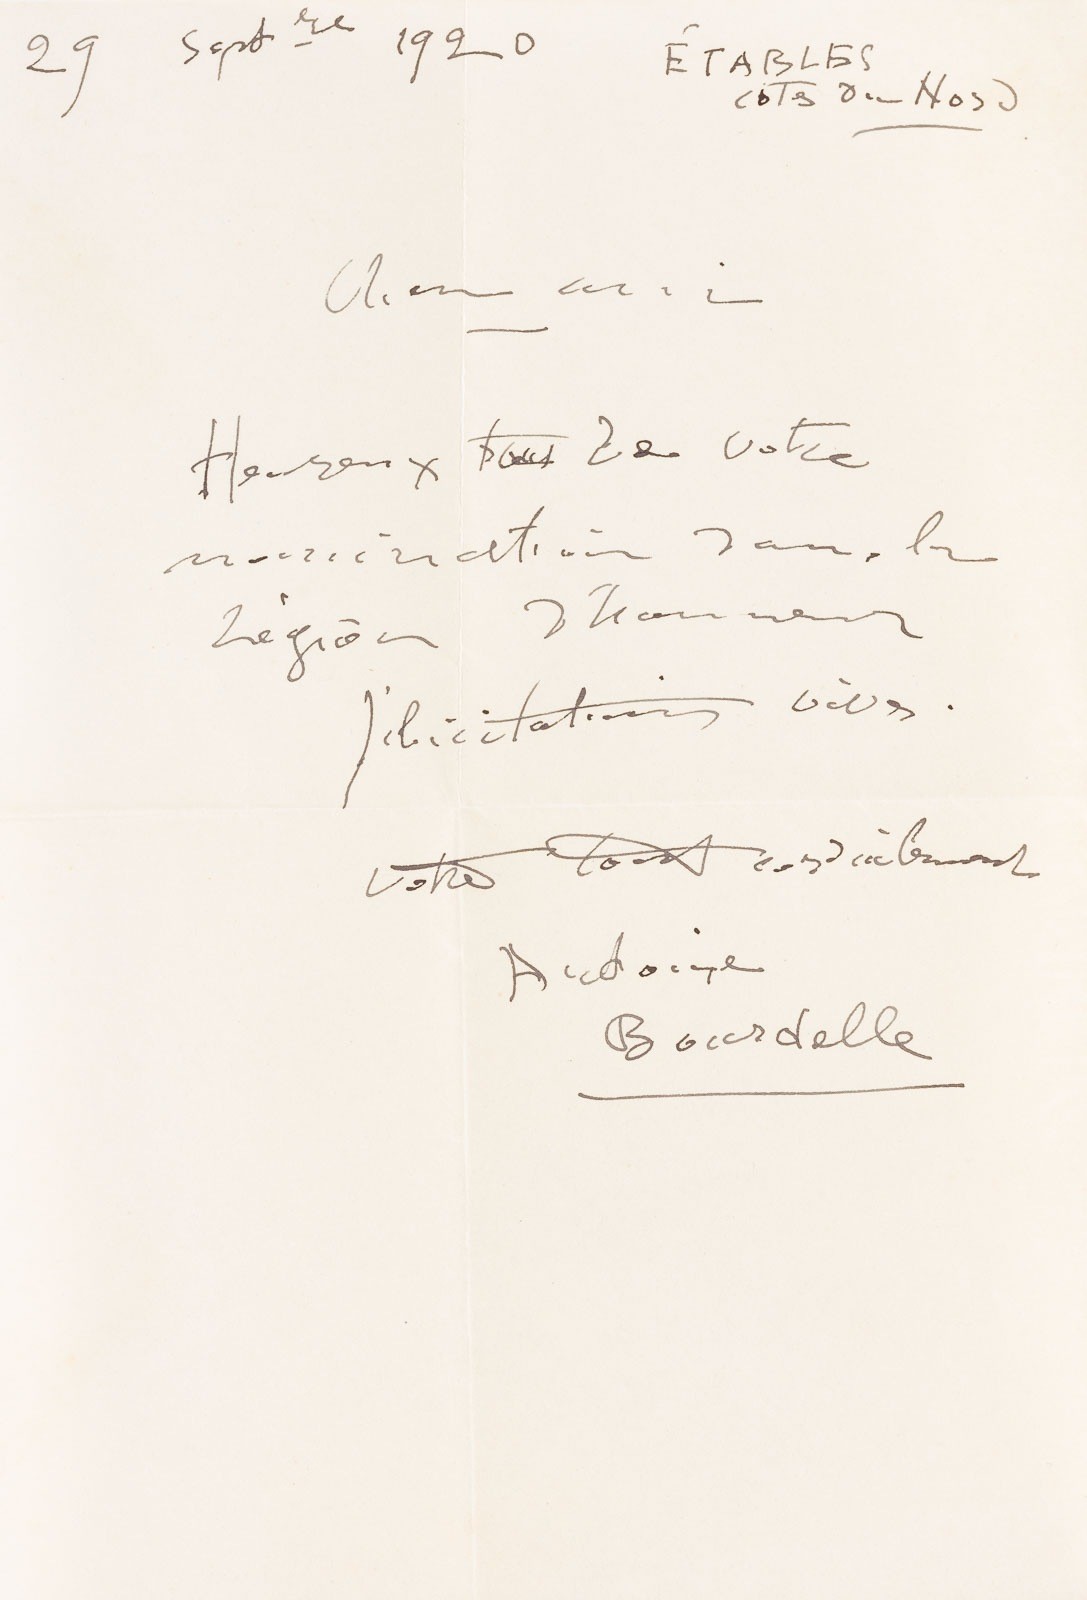 29 Septbre 1920 ÉTABLES
côtes du Nord
Cher ami
Heureux tous de votre
nomination dans la
Légion d'honneur
félicitations vives.
votre tout cordialement
Antoine
Bourdelle